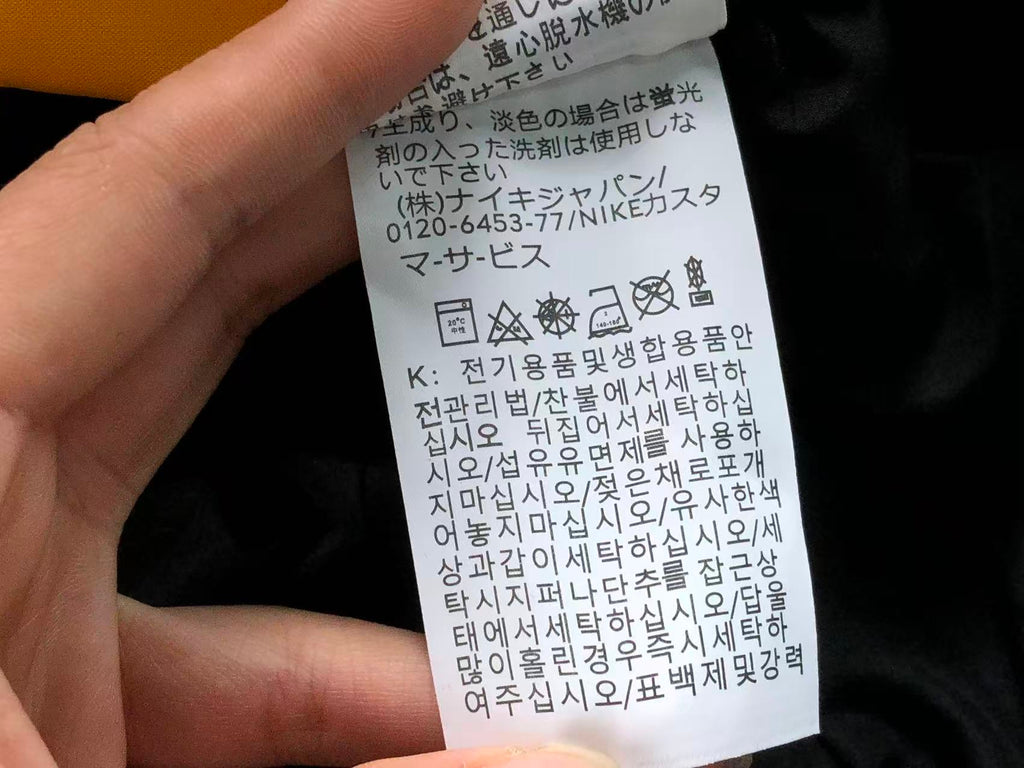 を通しは
場合は、遠心脱水機の使
を避け下さい
生成り、淡色の場合は蛍光
剤の入った洗剤は使用しな
いで下さい
(株)ナイキジャパン/
0120-6453-77/NIKEカスタ
マ-サ-ビス
20°C
中性
K: 전기용품및생합용품안
전관리법/찬불에서세탁하
십시오 뒤집어서세탁하십
시오/섭유유면제를 사용하
지마십시오/젖은채로포개
어놓지마십시오/유사한색
상과갑이세탁하십시오/세
탁시지퍼나단추를 잡근상
태에서세탁하십시오/답울
많이홀린경우즉시세탁하
여주십시오/표백제및강력